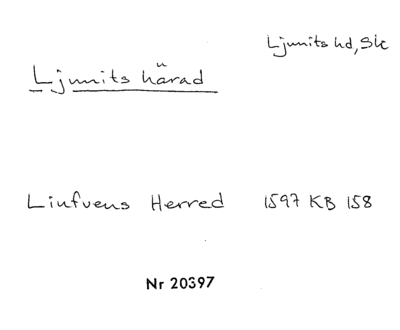 Ljunits hd, Sk
Ljunits härad
Liufvens Herred 1597 KB 158
Nr 20397